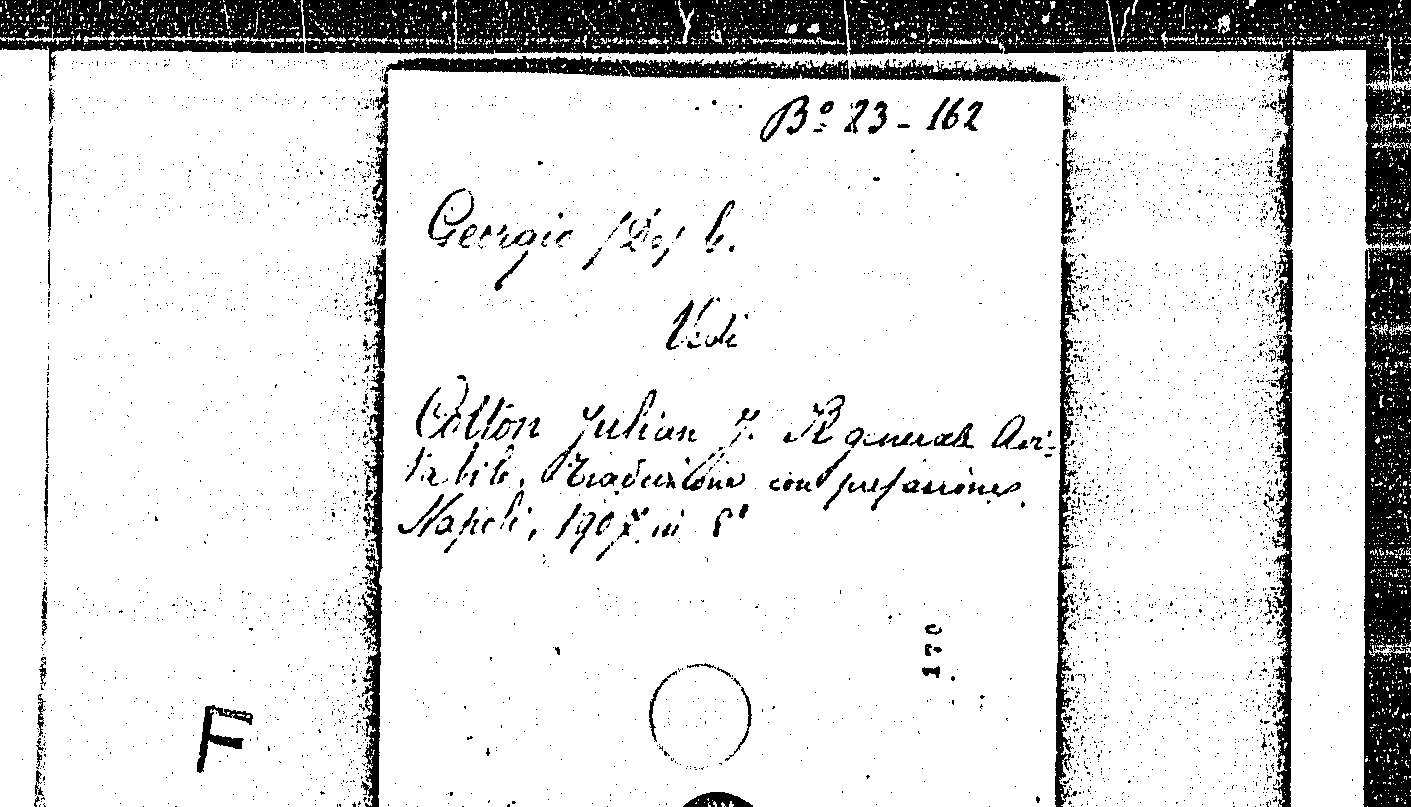 Bº 23 - 162
Georgio (De) C.
Vedi
Cotton Julian J. Il generale Avi-
tabile. Traduzione con prefazione.
Napoli, 1907 in 8º
170
F